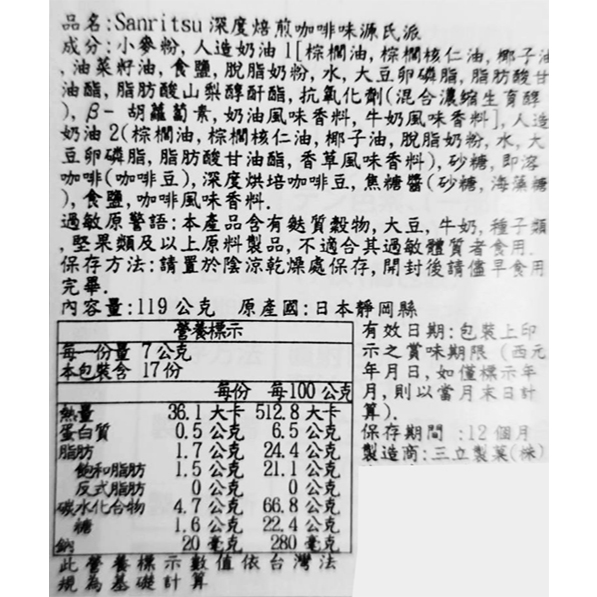 品名:Sanritsu深度焙煎咖啡味源氏派
成分:小麥粉,人造奶油1[棕櫚油,棕櫚核仁油,椰子油
,油菜籽油,食鹽,脫脂奶粉,水,大豆卵磷脂,脂肪酸甘
油酯,脂肪酸山梨醇酐酯,抗氧化劑(混合濃縮生育醇
),β-胡蘿蔔素,奶油風味香料,牛奶風味香料],人造
奶油2(棕櫚油,棕櫚核仁油,椰子油,脫脂奶粉,水,大
豆卵磷脂,脂肪酸甘油酯,香草風味香料),砂糖,即溶
咖啡(咖啡豆),深度烘培咖啡豆,焦糖醬(砂糖,海藻糖
),食鹽,咖啡風味香料.
過敏原警語:本產品含有麩質穀物,大豆,牛奶,種子類
,堅果類及以上原料製品,不適合其過敏體質者食用.
保存方法:請置於陰涼乾燥處保存,開封後請儘早食用
完畢.
內容量:119公克 原產國:日本靜岡縣
營養標示
每一份量 7公克
本包裝含 17份
每份 每100公克
熱量 36.1大卡 512.8大卡
蛋白質 0.5公克 6.5公克
脂肪 1.7公克 24.4公克
飽和脂肪 1.5公克 21.1公克
反式脂肪 0公克 0公克
碳水化合物 4.7公克 66.8公克
糖 1.6公克 22.4公克
鈉 20毫克 280毫克
此營養標示數值依台灣法
規為基礎計算
有效日期:包裝上印
示之賞味期限(西元
年月日,如僅標示年
月,則以當月末日計
算).
保存期間:12個月
製造商:三立製菓(株)